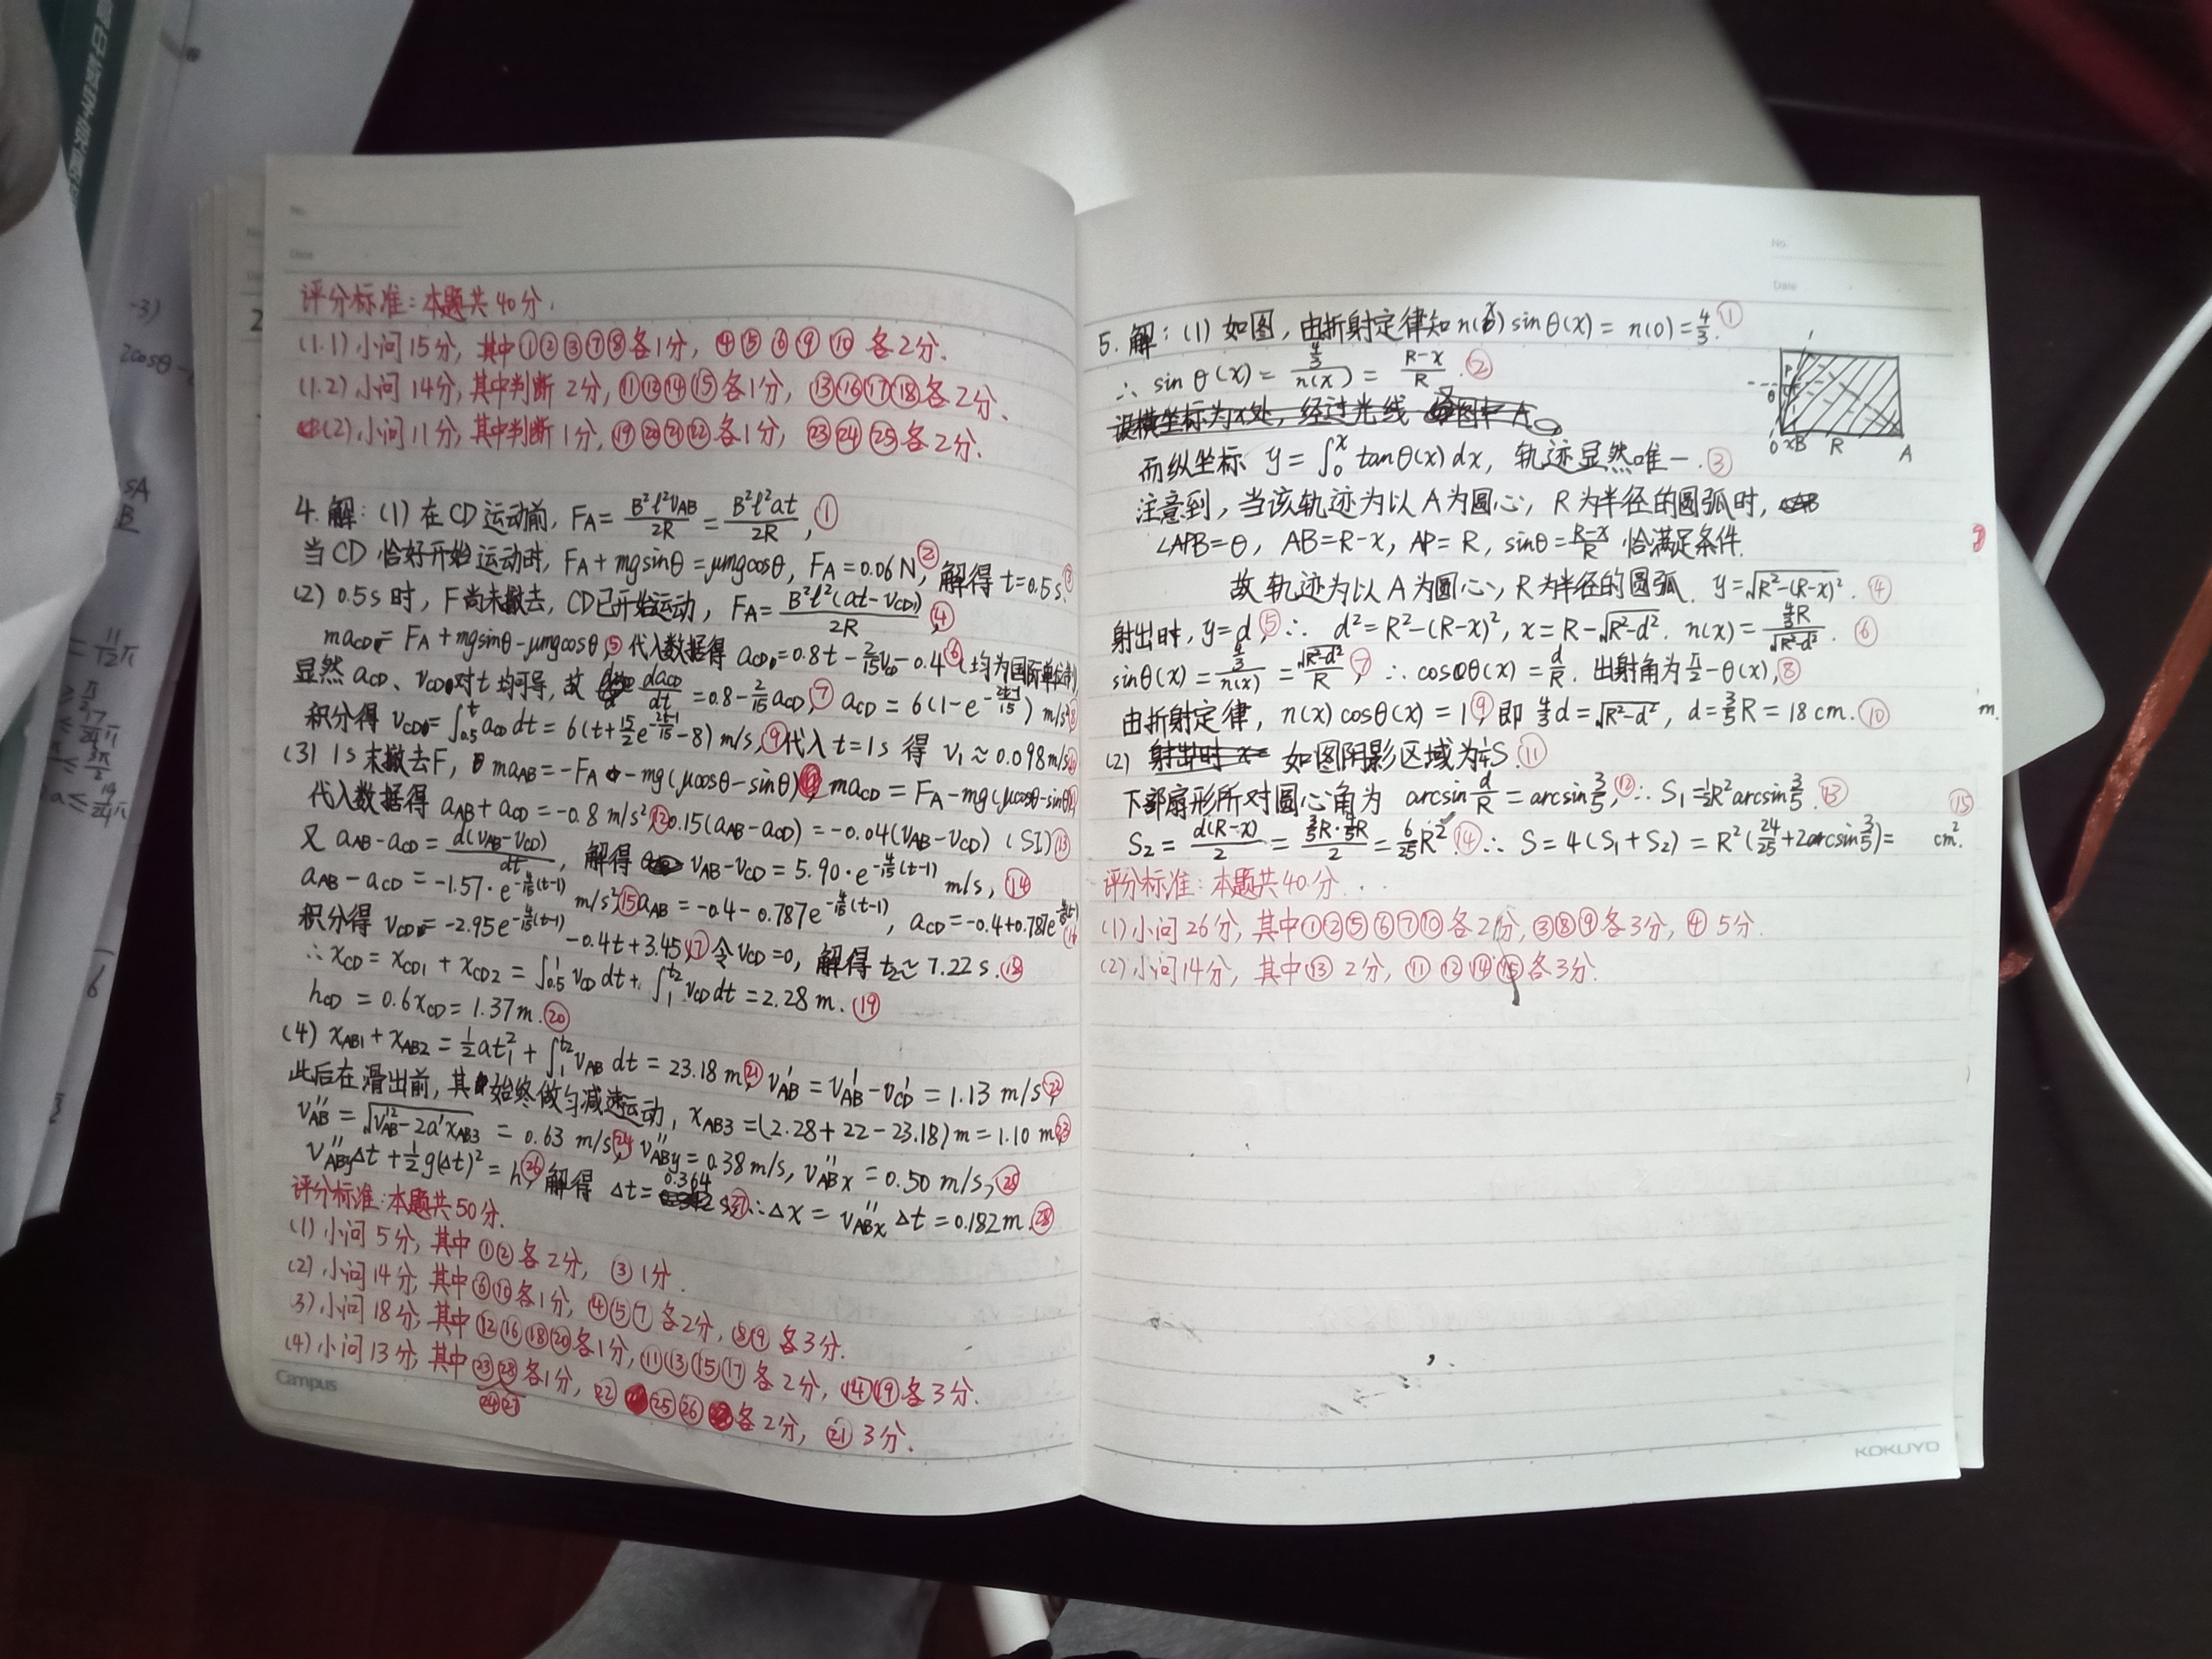 No.
Date
评分标准：本题共40分．
(1.1) 小问15分，其中①②③⑦⑧各1分，④⑤⑥⑨⑩各2分．
(1.2) 小问14分，其中判断2分，⑪⑫⑭⑮各1分，⑬⑯⑰⑱各2分．
(2) 小问11分，其中判断1分，⑲⑳㉑㉒各1分，㉓㉔㉕各2分．
4. 解：(1) 在CD运动前，F_A = B²l²v_AB/2R = B²l²at/2R，①
当CD恰好开始运动时，F_A+mgsinθ=μmgcosθ，F_A=0.06N，② 解得t=0.5s．③
(2) 0.5s时，F尚未撤去，CD已开始运动，F_A = B²l²(at-v_CD)/2R，④
ma_CD = F_A+mgsinθ-μmgcosθ，⑤ 代入数据得 a_CD=0.8t-2/15 v_CD-0.4 ⑥ (均为国际单位制)
显然 a_CD、v_CD对t均可导，故 da_CD/dt = 0.8-2/15 a_CD，⑦ a_CD = 6(1-e^(-(2t-1)/15)) m/s² ⑧
积分得 v_CD=∫_0.5^t a_CD dt = 6(t+15/2 e^(-(2t-1)/15)-8) m/s，⑨ 代入t=1s 得 v₁≈0.098m/s．⑩
(3) 1s末撤去F，ma_AB=-F_A-mg(μcosθ-sinθ)，ma_CD=F_A-mg(μcosθ-sinθ)⑪
代入数据得 a_AB+a_CD=-0.8 m/s²，⑫ 0.15(a_AB-a_CD)=-0.04(v_AB-v_CD) (SI) ⑬
又 a_AB-a_CD = d(v_AB-v_CD)/dt，解得 v_AB-v_CD=5.90·e^(-4/15(t-1)) m/s，⑭
a_AB-a_CD=-1.57·e^(-4/15(t-1)) m/s²，⑮ a_AB=-0.4-0.787e^(-4/15(t-1))，a_CD=-0.4+0.787e^(-4/15(t-1)) ⑯
积分得 v_CD=-2.95e^(-4/15(t-1))-0.4t+3.45，⑰ 令v_CD=0，解得t₂≈7.22s．⑱
∴x_CD=x_CD1+x_CD2=∫_0.5^1 v_CD dt+∫_1^t₂ v_CD dt=2.28m．⑲
h_CD=0.6x_CD=1.37m．⑳
(4) x_AB1+x_AB2=½at₁²+∫_1^t₂ v_AB dt=23.18m，㉑ v'_AB=v'_AB-v'_CD=1.13m/s，㉒
此后在滑出前，其始终做匀减速运动，x_AB3=(2.28+22-23.18)m=1.10m，㉓
v''_AB=√(v'_AB²-2a'x_AB3)=0.63m/s，㉔ v''_ABy=0.38m/s，v''_ABx=0.50m/s，㉕
v''_ABy Δt+½g(Δt)²=h，㉖ 解得 Δt=0.364 s，㉗ ∴Δx=v''_ABx Δt=0.182m．㉘
评分标准：本题共50分．
(1) 小问5分，其中①②各2分，③1分．
(2) 小问14分，其中⑥⑩各1分，④⑤⑦各2分，⑧⑨各3分．
3) 小问18分，其中⑫⑯⑱⑳各1分，⑪⑬⑮⑰各2分，⑭⑲各3分．
(4) 小问13分，其中㉓㉘㉔㉗各1分，㉒㉕㉖各2分，㉑3分．
Campus
No.
Date
5. 解：(1) 如图，由折射定律知n(x)sinθ(x)=n(0)=4/3．①
∴sinθ(x)=(4/3)/n(x)=(R-x)/R．②
而纵坐标 y=∫_0^x tanθ(x)dx，轨迹显然唯一．③
注意到，当该轨迹为以A为圆心，R为半径的圆弧时，
∠APB=θ，AB=R-x，AP=R，sinθ=(R-x)/R 恰满足条件．
故轨迹为以A为圆心，R为半径的圆弧．y=√(R²-(R-x)²)．④
射出时，y=d，⑤ ∴d²=R²-(R-x)²，x=R-√(R²-d²)．n(x)=(4/3 R)/√(R²-d²)．⑥
sinθ(x)=(4/3)/n(x)=√(R²-d²)/R，⑦ ∴cosθ(x)=d/R．出射角为π/2-θ(x)，⑧
由折射定律，n(x)cosθ(x)=1，⑨ 即 4/3 d=√(R²-d²)，d=3/5 R=18cm．⑩
m.
(2) 如图阴影区域为¼S．⑪
下部扇形所对圆心角为 arcsin d/R=arcsin 3/5，⑫ ∴S₁=½R²arcsin 3/5．⑬
S₂=d(R-x)/2=(3/5 R·4/5 R)/2=6/25 R²．⑭ ∴S=4(S₁+S₂)=R²(24/25+2arcsin 3/5)= cm²．⑮
评分标准：本题共40分．
(1) 小问26分，其中①②⑤⑥⑦⑩各2分，③⑧⑨各3分，④5分．
(2) 小问14分，其中⑬2分，⑪⑫⑭⑮各3分．
P
θ
0 xB R A
KOKUYO